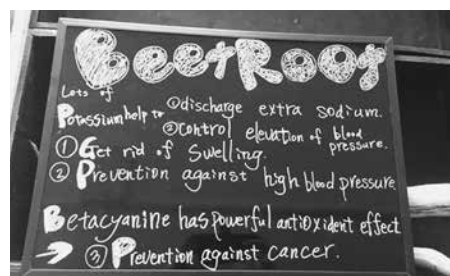 BeetRoot
Lots of
Potassium help to ①discharge extra sodium.
②control elevation of blood pressure.
① Get rid of Swelling.
② Prevention against high blood pressure.
Betacyanine has powerful antioxident effect
→ ③ Prevention against cancer.